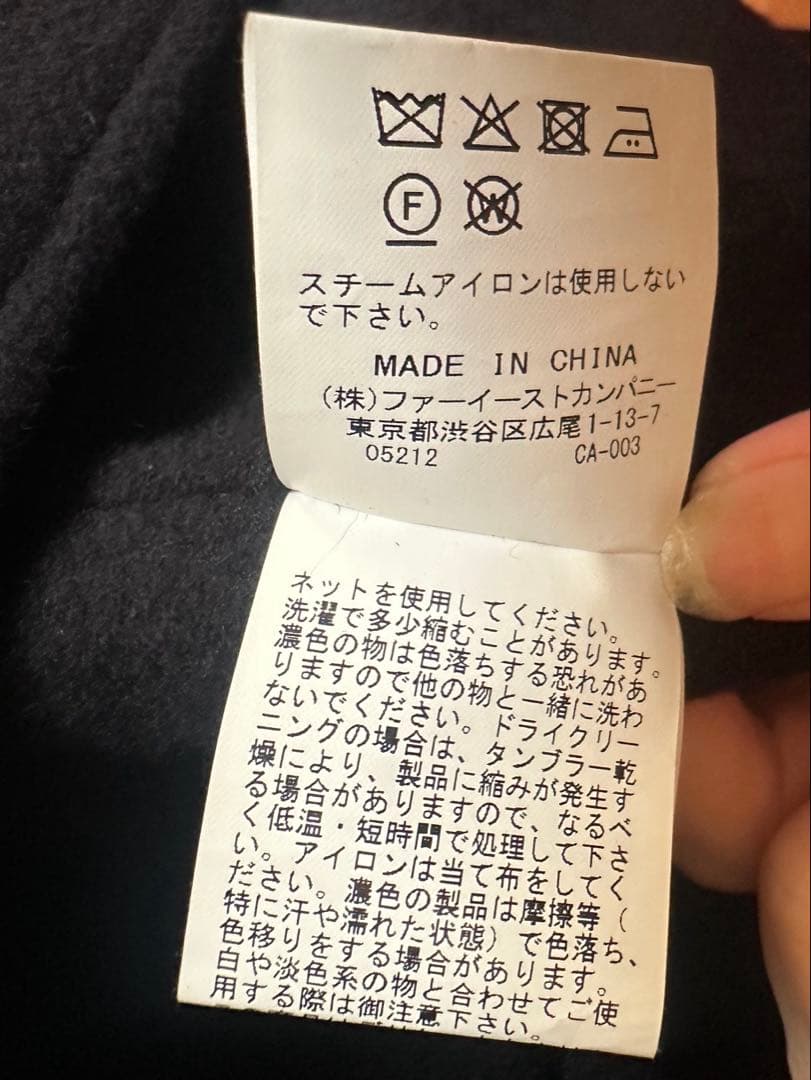 F
W
スチームアイロンは使用しない
で下さい。
MADE IN CHINA
(株)ファーイーストカンパニー
東京都渋谷区広尾1-13-7
05212 CA-003
ネットを使用してください。
洗濯で多少縮むことがあります。
濃色の物は色落ちする恐れがあ
りますので他の物と一緒に洗わ
ないでください。ドライクリー
ニングの場合は、タンブラー乾
燥により、製品に縮みが発生す
る場合がありますので、なるべ
く低温・短時間で処理して下さ
い。アイロンは当て布をしてく
ださい。濃色の製品は摩擦等(
特に汗や濡れた状態)で色落ち、
色移りをする場合があります。
白や淡色系の物と合わせてご使
用する際は御注意下さい。